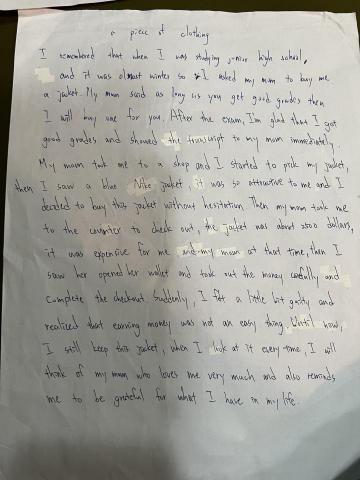 a piece of clothing
I remembered that when I was studying junior high school,
and it was almost winter so I asked my mom to buy me
a jacket. My mom said as long as you get good grades then
I will buy one for you. After the exam, I'm glad that I got
good grades and showed the transcript to my mom immediately.
My mom took me to a shop and I started to pick my jacket,
then I saw a blue Nike jacket, it was so attractive to me and I
decided to buy this jacket without hesitation. Then my mom took me
to the counter to check out, the jacket was about 2500 dollars,
it was expensive for me and my mom at that time, then I
saw her opened her wallet and took out the money carefully and
complete the checkout. Suddenly, I felt a little bit guilty and
realized that earning money was not an easy thing. Until now,
I still keep this jacket, when I look at it every time, I will
think of my mom who loves me very much and also reminds
me to be grateful for what I have in my life.